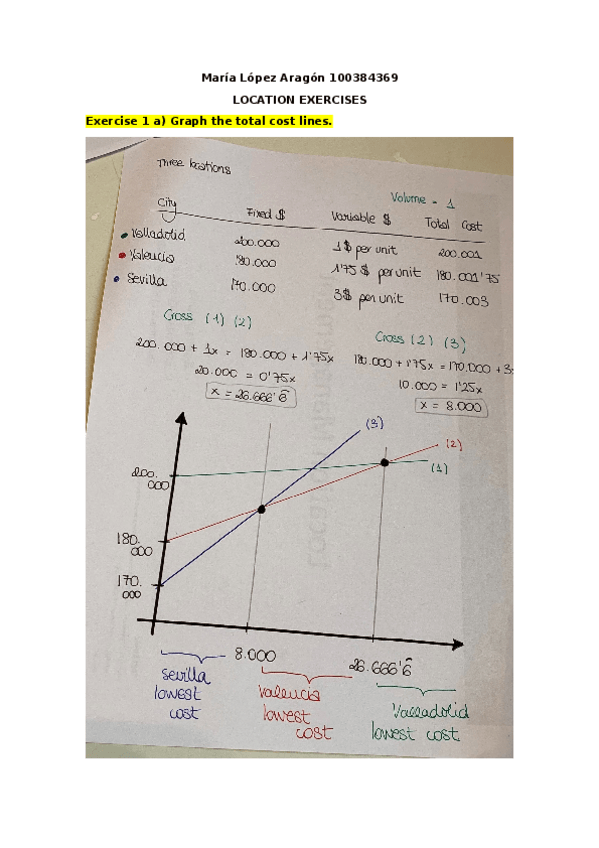 María López Aragón 100384369
LOCATION EXERCISES
Exercise 1 a) Graph the total cost lines.
Three locations
Volume = 1
City Fixed $ Variable $ Total Cost
Valladolid 200.000 1$ per unit 200.001
Valencia 180.000 1'75 $ per unit 180.001'75
Sevilla 170.000 3$ per unit 170.003
Cross (1) (2) Cross (2) (3)
200.000 + 1x = 180.000 + 1'75x 180.000 + 1'75x = 170.000 + 3x
20.000 = 0'75x 10.000 = 1'25x
x = 26.666'6̂ x = 8.000
(3)
(2)
(1)
200.
000
180.
000
170.
000
8.000 26.666'6̂
Sevilla
lowest
cost
Valencia
lowest
cost
Valladolid
lowest cost